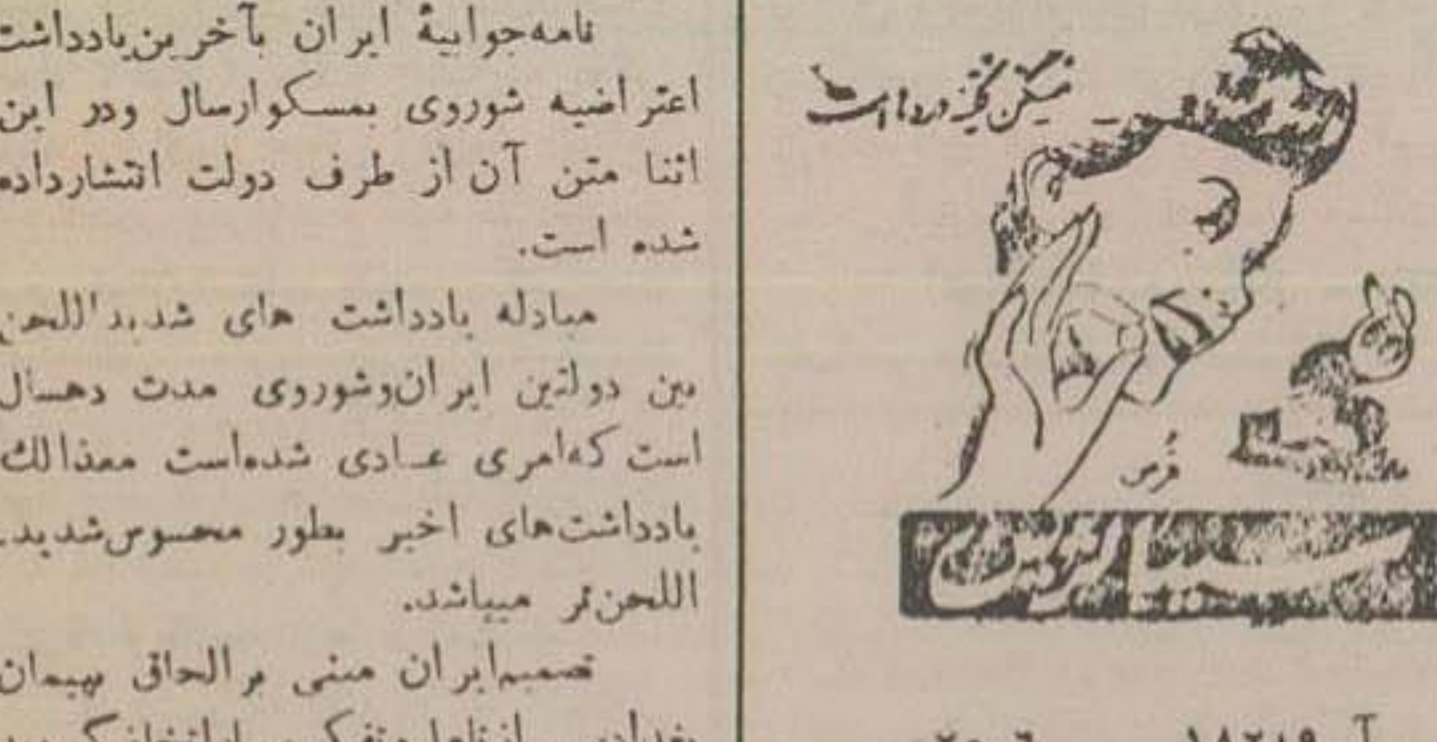 مسکن کلیه دردها است
قرص
آ ـ ۱۸۲۸۹
نامه‌جوابیهٔ ایران بآخرین‌یادداشت
اعتراضیه شوروی بمسکوارسال ودر این
اثنا متن آن از طرف دولت انتشارداده
شده است.
مبادله یادداشت های شدیداللحن
بین دولتین ایران‌وشوروی مدت دهسال
است که‌امری عادی شده‌است معذالك
یادداشت‌های اخیر بطور محسوس‌شدید‌ـ
اللحن‌تر میباشد.
تصمیم‌ایران مبنی بر الحاق بپیمان